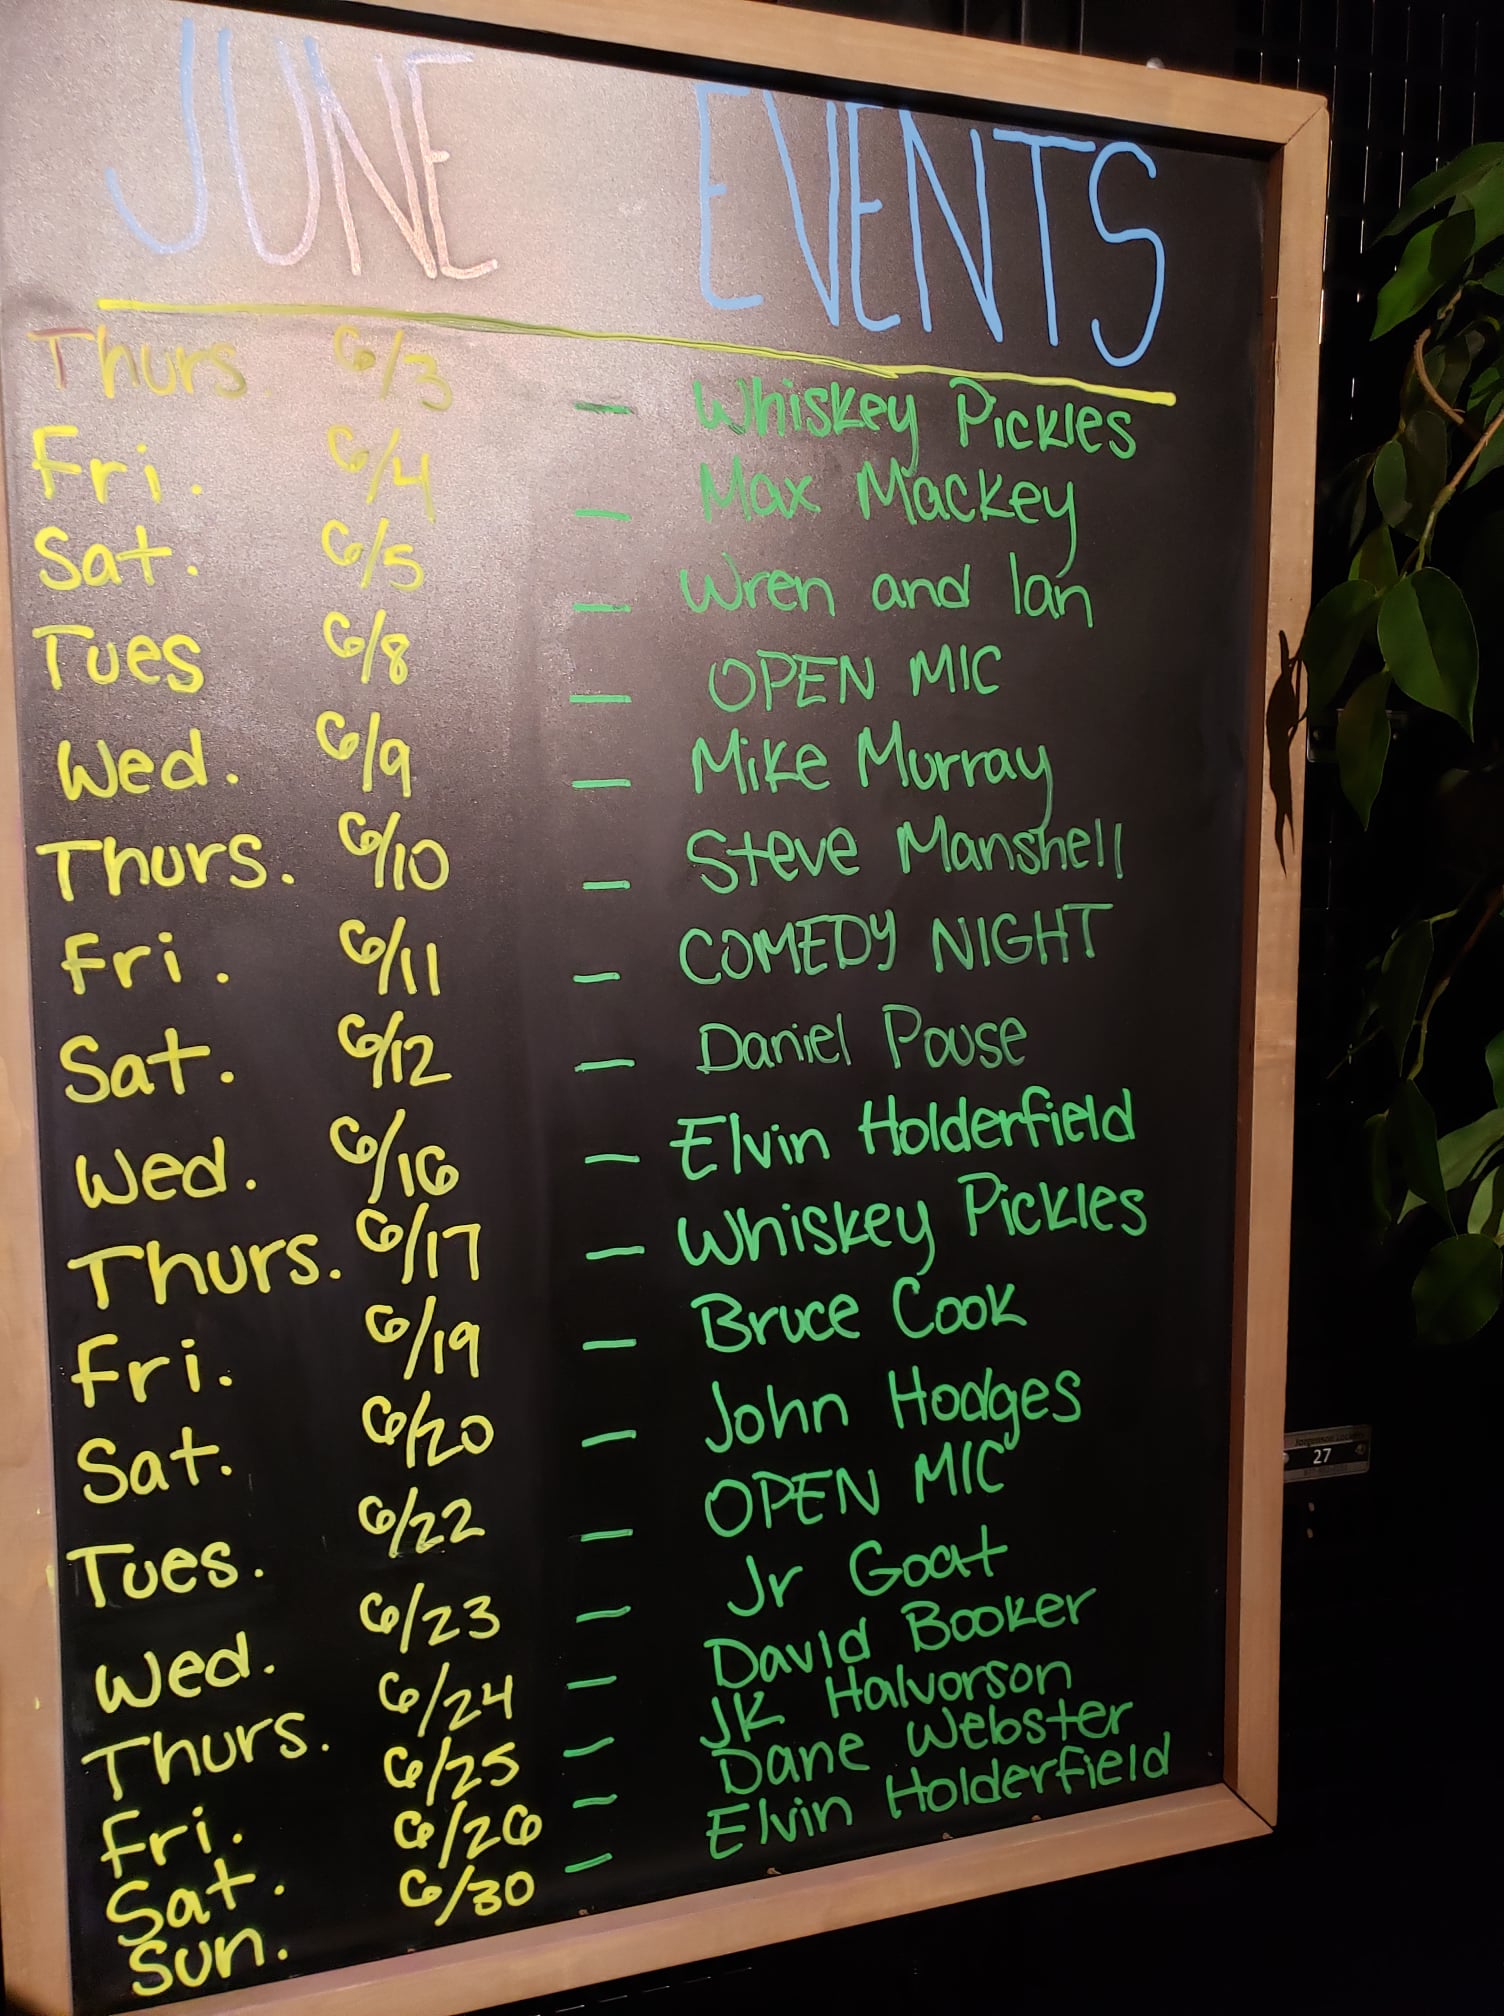 JUNE EVENTS
Thurs 6/3 — Whiskey Pickles
Fri. 6/4 — Max Mackey
Sat. 6/5 — Wren and Ian
Tues 6/8 — OPEN MIC
Wed. 6/9 — Mike Murray
Thurs. 6/10 — Steve Manshell
Fri. 6/11 — COMEDY NIGHT
Sat. 6/12 — Daniel Pouse
Wed. 6/16 — Elvin Holderfield
Thurs. 6/17 — Whiskey Pickles
Fri. 6/19 — Bruce Cook
Sat. 6/20 — John Hodges
Tues. 6/22 — OPEN MIC
Wed. 6/23 — Jr Goat
Thurs. 6/24 — David Booker
Fri. 6/25 — JK Halvorson
Sat. 6/26 — Dane Webster
Sun. 6/30 — Elvin Holderfield
27